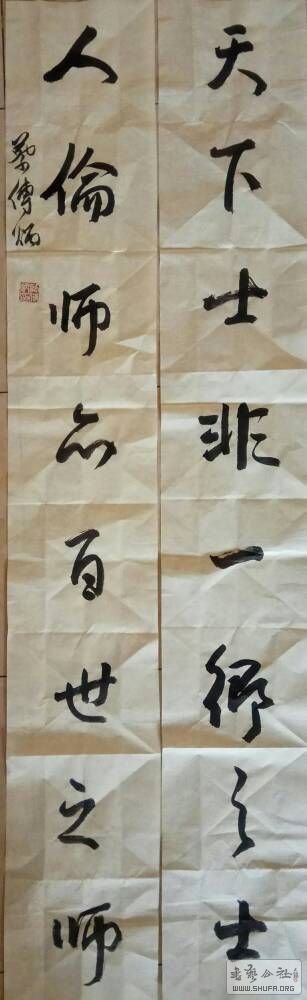 天下士非一鄉之士
人倫師亦百世之師
WWW.SHUFA.ORG